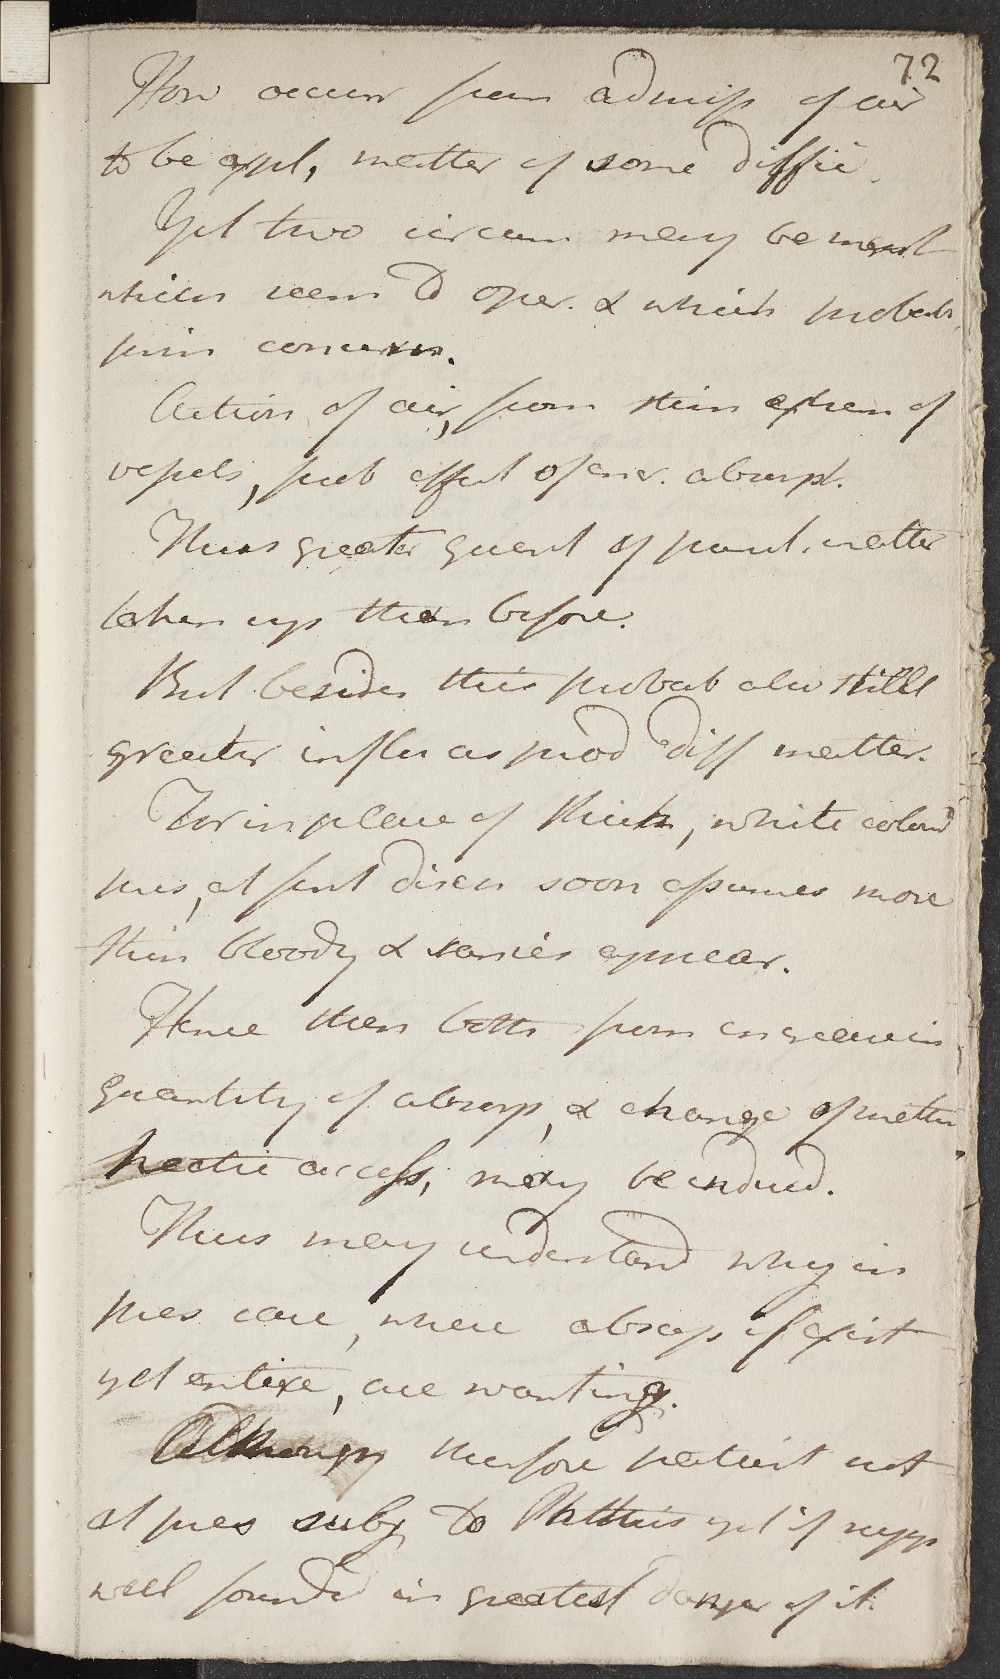 72
How occurr from admiss of air
to be expl, matter of some diffic.
Yet two circum may be ment
which seem to oper. & which probab
join concurr.
Action of air, from stim extrem of
vessels, prob effect of incr. absorpt.
Thus greater quant of purul. matter
taken up than before.
But besides this probab also still
greater influ as prod diff matter.
For in place of thick, white colour'd
pus, at first disch soon assumes more
thin bloody & sanies appear.
Hence then both from increase in
quantity of absorp, & change of matter
hectic access, may be induced.
Thus may understand why in
pres case, where absceps if exist
yet entire, are wanting.
Although therfore patient not
at pres subj to Phthisis yet if supp
well found in greatest danger of it.